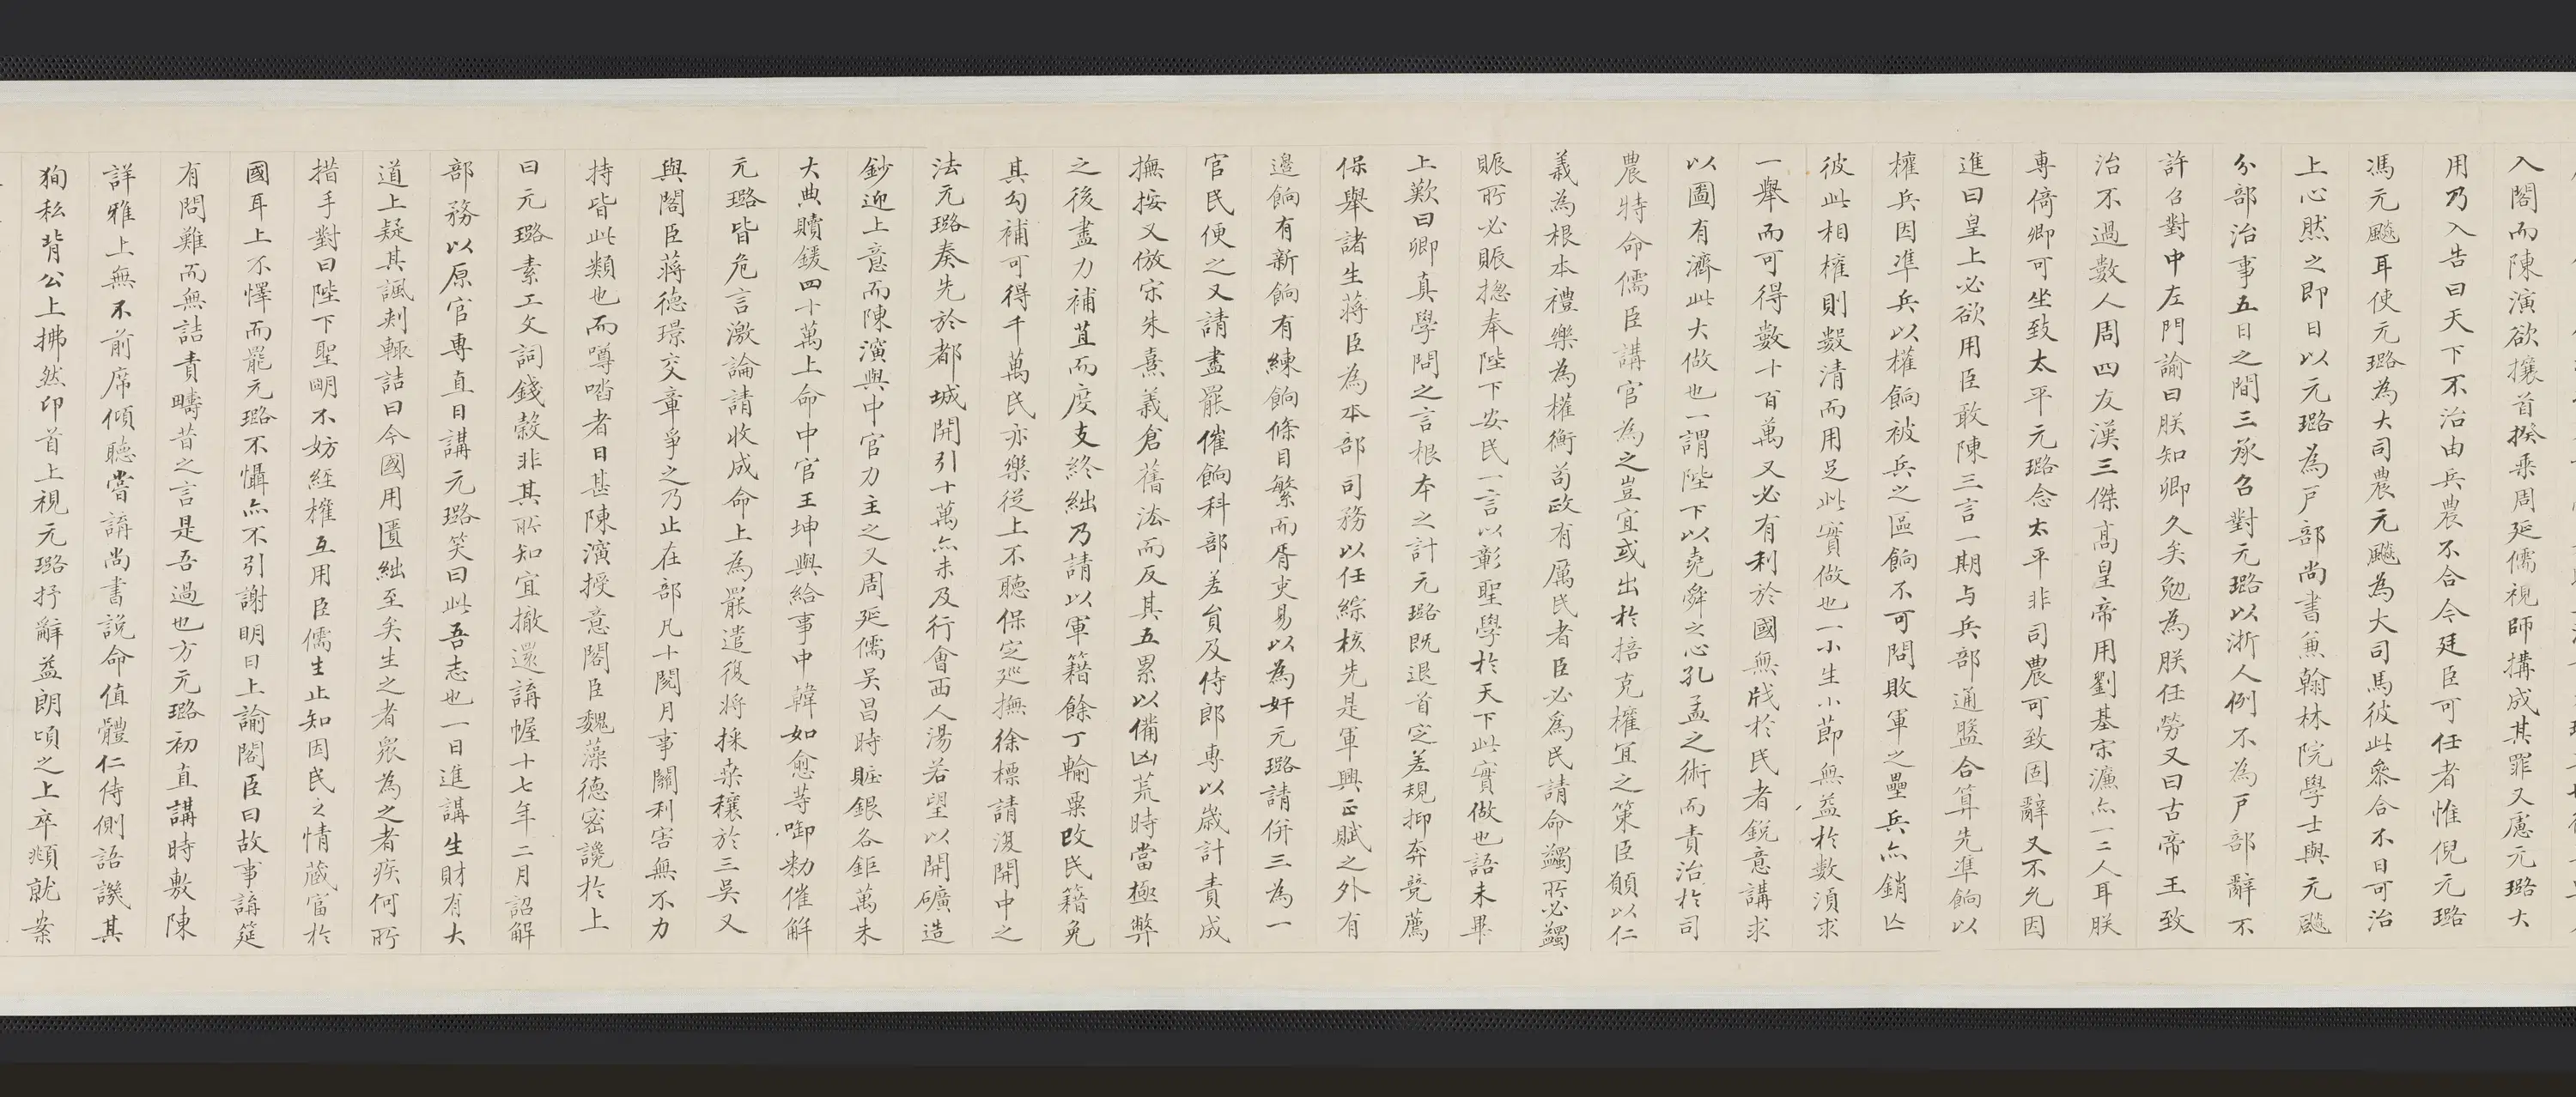 入閣而陳演欲攘首揆乘周延儒視師搆成其罪又慮元璐大
用乃入告曰天下不治由兵農不合今廷臣可任者惟倪元璐
馮元飈耳使元璐為大司農元飈為大司馬彼此參合不日可治
上心然之即日以元璐為戶部尚書兼翰林院學士與元飈
分部治事五日之間三承召對元璐以浙人例不為戶部辭不
許召對中左門諭曰朕知卿久矣勉為朕任勞又曰古帝王致
治不過數人周四友漢三傑高皇帝用劉基宋濂亦一二人耳朕
專倚卿可坐致太平元璐念太平非司農可致固辭又不允因
進曰皇上必欲用臣敢陳三言一期与兵部通盤合算先準餉以
權兵因準兵以權餉被兵之區餉不可問敗軍之壘兵亦銷亾
彼此相權則數清而用足此實做也一小生小節無益於數湏求
一舉而可得數十百萬又必有利於國無戕於民者銳意講求
以圖有濟此大做也一謂陛下以堯舜之心孔孟之術而責治於司
農特命儒臣講官為之豈宜或出於掊克權宜之策臣願以仁
義為根本禮樂為權衡苟政有厲民者臣必為民請命蠲所必蠲
賑所必賑揔奉陛下安民一言以彰聖學於天下此實做也語未畢
上歎曰卿真學問之言根本之計元璐既退首定差規抑奔競薦
保舉諸生蔣臣為本部司務以任綜核先是軍興正賦之外有
邊餉有新餉有練餉條目繁而胥吏易以為奸元璐請併三為一
官民便之又請盡罷催餉科部差貟及侍郎專以歲計責成
撫按又倣宋朱熹義倉舊法而反其五累以備凶荒時當極弊
之後盡力補苴而度支終絀乃請以軍籍餘丁輸粟改民籍免
其勾補可得千萬民亦樂從上不聽保定廵撫徐標請復開中之
法元璐奏先於都城開引十萬亦未及行會西人湯若望以開礦造
鈔迎上意而陳演與中官力主之又周延儒吳昌時賍銀各鉅萬未
大典贖鍰四十萬上命中官王坤與給事中韓如愈等啣勑催觧
元璐皆危言激論請收成命上為罷遣復將採桒穰於三吳又
與閣臣蔣德璟交章爭之乃止在部凡十閱月事關利害無不力
持皆此類也而噂喈者日甚陳演授意閣臣魏藻德密讒於上
曰元璐素工文詞錢穀非其所知宜撤還講幄十七年二月詔解
部務以原官專直日講元璐笑曰此吾志也一日進講生財有大
道上疑其諷刾輒詰曰今國用匱絀至矣生之者衆為之者疾何所
措手對曰陛下聖明不妨經權互用臣儒生止知因民之情藏富於
國耳上不懌而罷元璐不懾亦不引謝明日上諭閣臣曰故事講筵
有問難而無詰責疇昔之言是吾過也方元璐初直講時敷陳
詳雅上無不前席傾聽嘗講尚書說命值體仁侍側語譏其
狥私背公上拂然印首上視元璐抒辭益朗頃之上卒頫就案